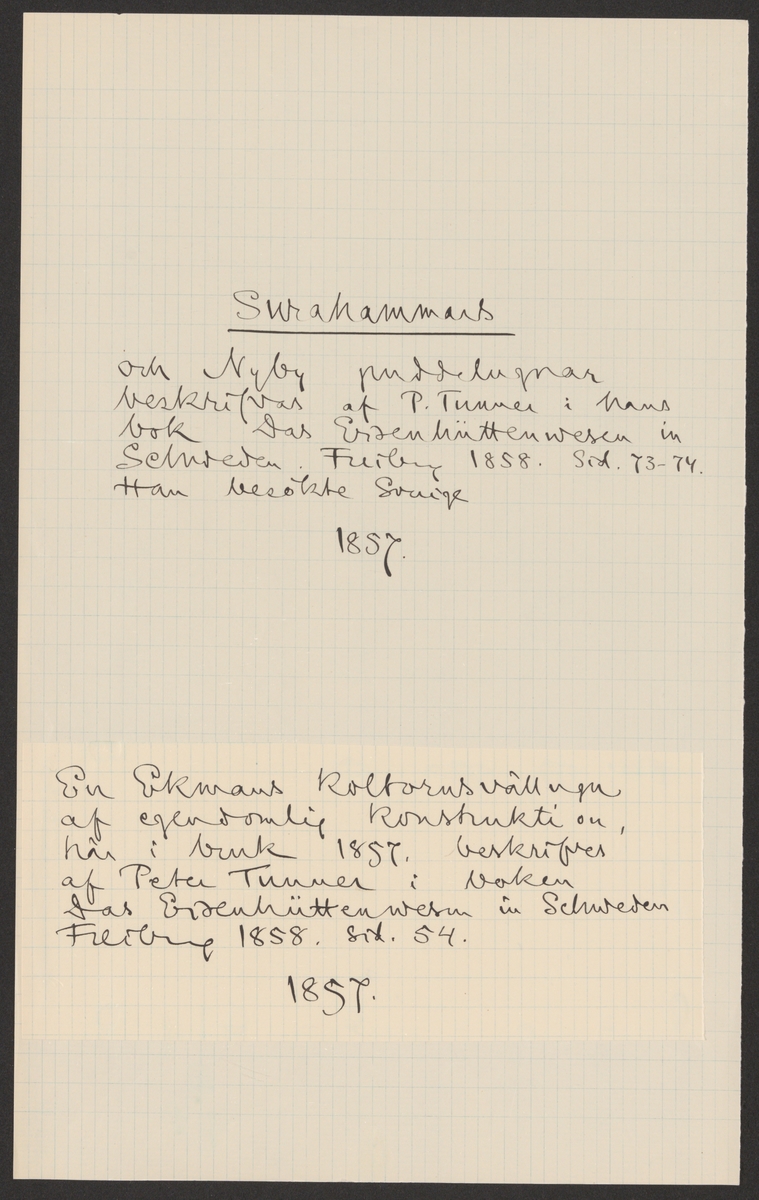 Surahammars
och Nyby puddelugnar
beskrifvas af P. Tunner i hans
bok Das Eisenhüttenwesen in
Schweden. Freiberg 1858. Sid. 73-74.
Han besökte Sverige
1857.
En Ekmans Koltornsvällugn
af egendomlig Konstruktion,
här i bruk 1857, beskrifves
af Peter Tunner i boken
Das Eisenhüttenwesen in Schweden
Freiberg 1858. Sid. 54.
1857.